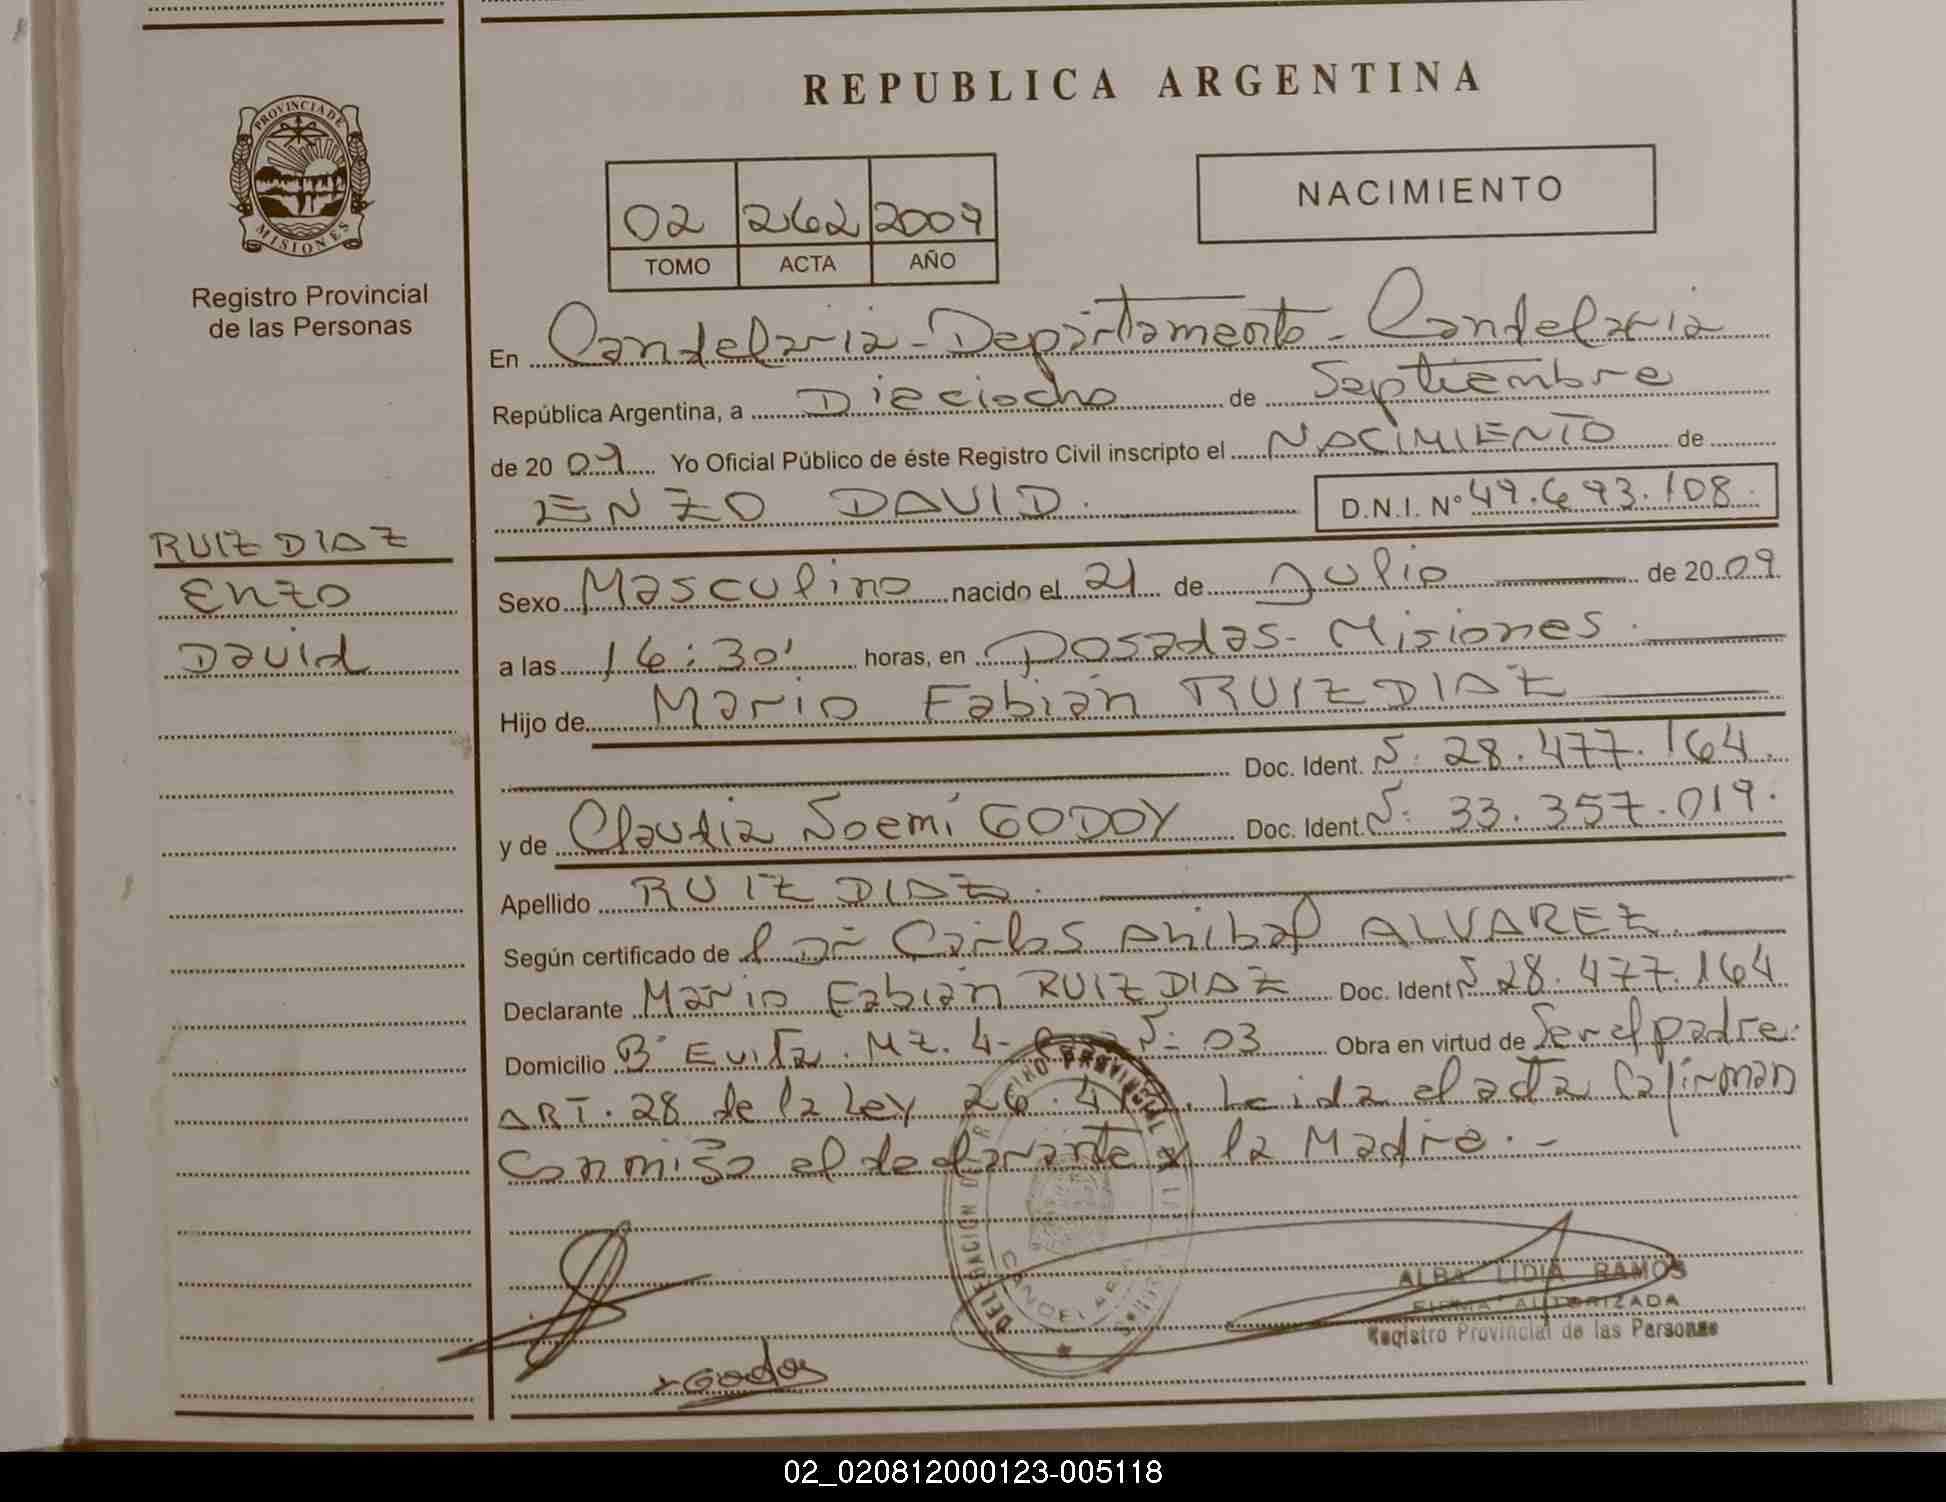 REPUBLICA ARGENTINA
PROVINCIA DE
MISIONES
Registro Provincial
de las Personas
02 262 2009
TOMO ACTA AÑO
NACIMIENTO
En Candelaria - Departamento - Candelaria
República Argentina, a Dieciocho de Septiembre
de 20 09 Yo Oficial Público de éste Registro Civil inscripto el NACIMIENTO de
ENZO DAVID. D.N.I. Nº 49.693.108.
RUIZ DIAZ
Enzo
David
Sexo Masculino nacido el 21 de Julio de 20 09
a las 16:30' horas, en Posadas - Misiones.
Hijo de Mario Fabián RUIZ DIAZ
Doc. Ident. Nº 28.477.164.
y de Claudia Noemí GODOY Doc. Ident. Nº 33.357.019.
Apellido RUIZ DIAZ.
Según certificado de l Dr. Carlos Anibal ALVAREZ.
Declarante Mario Fabián RUIZ DIAZ Doc. Ident Nº 28.477.164
Domicilio Bº Evita. Mz. 4- Nº 03 Obra en virtud de Ser el padre.
ART. 28 de la Ley Leida el acta la firman
Conmigo el declarante y la Madre.-
DELEGACION PROVINCIAL
ALBA LIDIA RAMOS
FIRMA AUTORIZADA
Registro Provincial de las Personas
Godoy
02_020812000123-005118